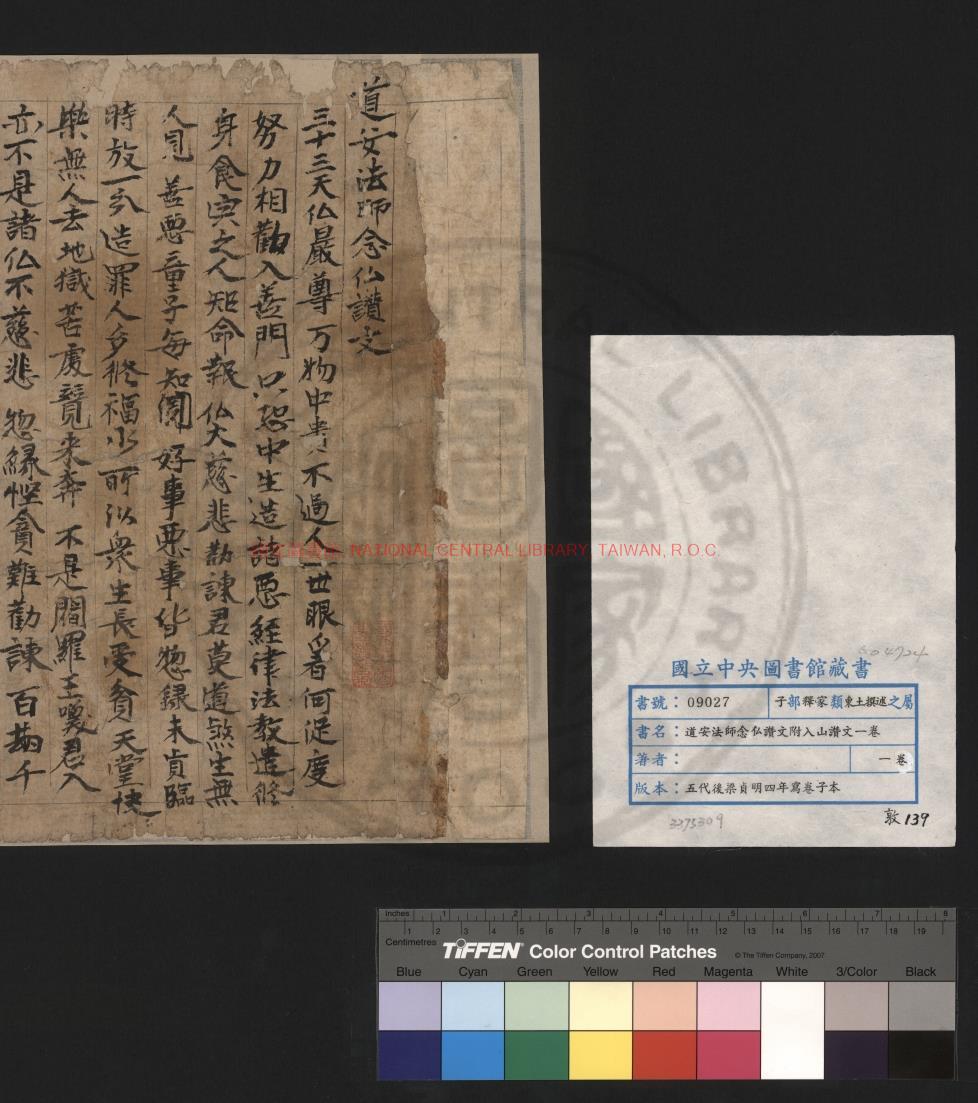 道安法師念仏讃文
三十三天仏最尊 万物中貴不過人 世眼看何足度
努力相勸入善門 只恐中生造諸惡 經律法教遣修
身 食宍之人短命報 仏大慈悲勸諫君 莫道煞生無
人見 善惡童子每知聞 好事惡事皆惣録 未肯臨
時放一分 造罪人多修福少 所以衆生長受貧 天堂快
樂無人去 地獄苦處競来奔 不是閻羅王喚君入
亦不是諸仏不慈悲 惣緣慳貪難勸諫 百劫千
NATIONAL CENTRAL LIBRARY, TAIWAN, R.O.C.
LIBRAR
國立中央圖書館藏書
書號：09027 子部釋家類東土撰述之屬
書名：道安法師念仏讃文附入山讃文一卷
著者： 一卷
版本：五代後梁貞明四年寫卷子本
3375309
敦139
Inches 1 2 3 4 5 6 7 8
1 2 3 4 5 6 7 8 9 10 11 12 13 14 15 16 17 18 19
Centimetres
TIFFEN® Color Control Patches © The Tiffen Company, 2007
Blue Cyan Green Yellow Red Magenta White 3/Color Black